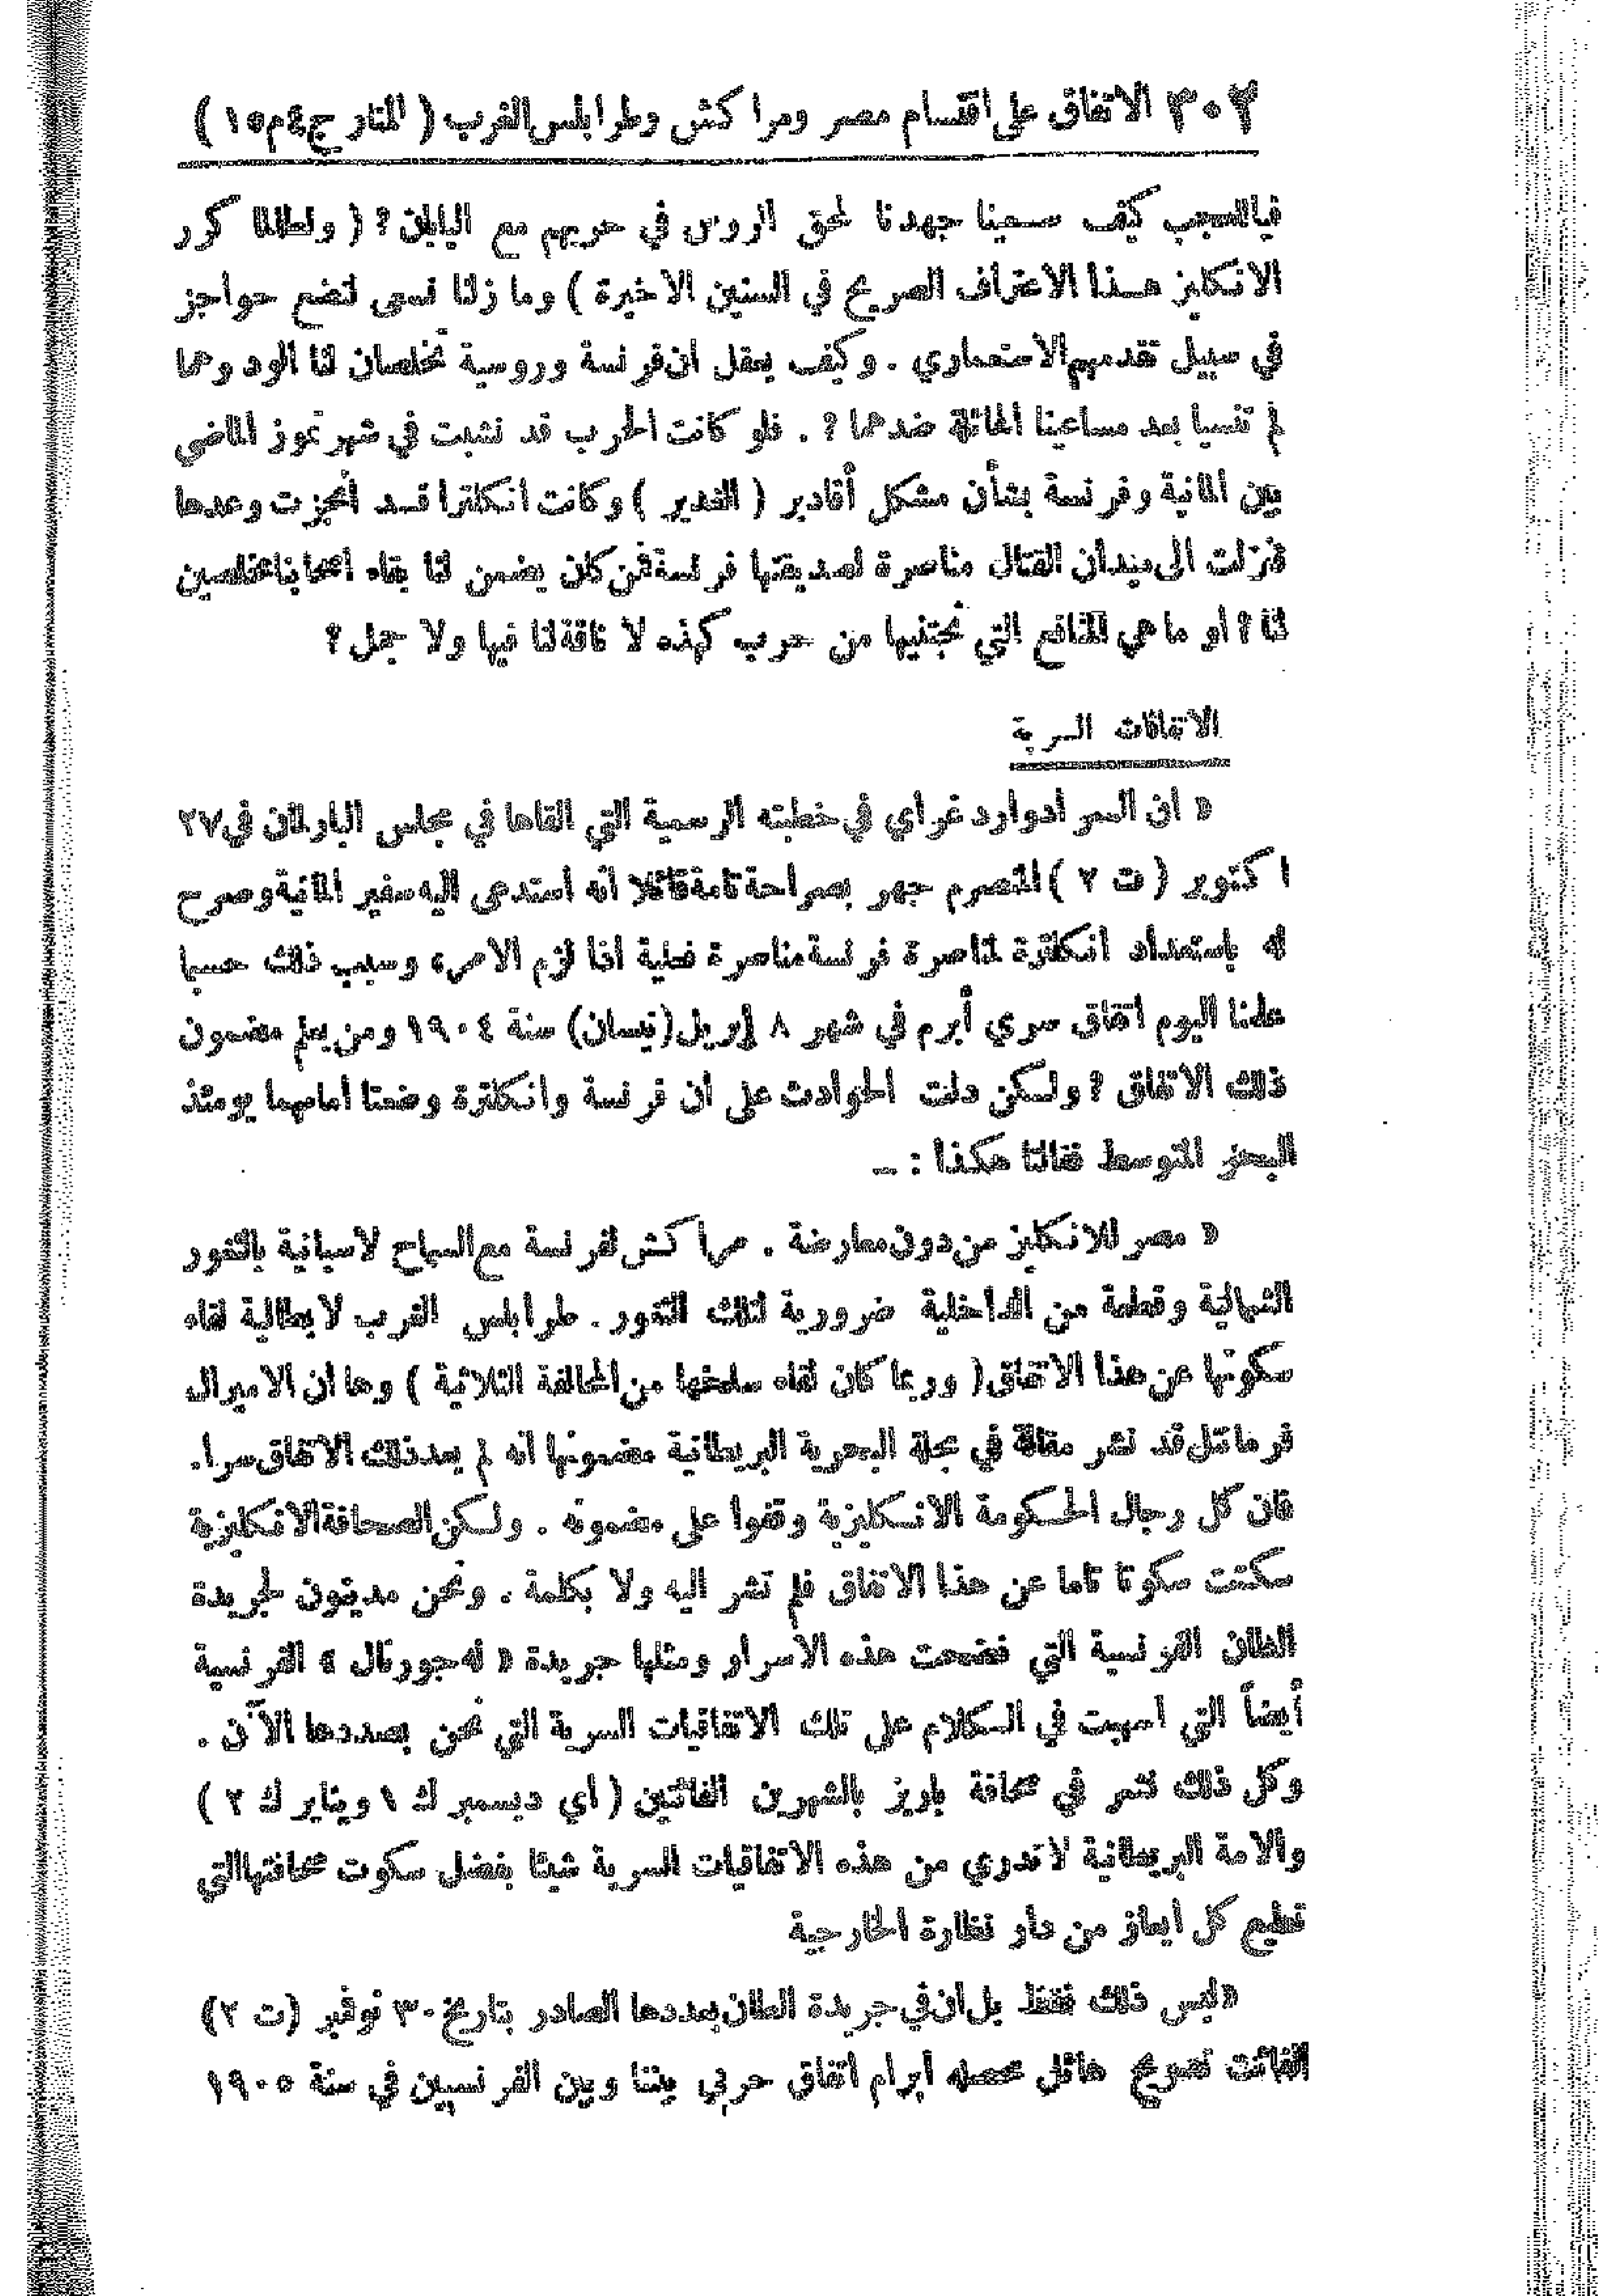 ٣٠٢ الاتفاق على اقتسام مصر ومراكش وطرابلس الغرب ( المنار ج٤م١٥ )
فيا للعجب كيف سعينا جهدنا لمحق الروس في حربهم مع اليابان ? ( ولطالما كرر
الانكليز هـذا الاعتراف الصريح في السنين الاخيرة ) وما زلنا نسعى لنضع حواجز
في سبيل تقدمهم الاستعماري . وكيف يعقل ان فرنسة وروسية تخلصان لنا الود وهما
لم تنسيا بعد مساعينا الهائلة ضدهما ? . فلو كانت الحرب قد نشبت في شهر تموز الماضي
بين المانية وفرنسة بشأن مشكل أقادير ( الغدير ) وكانت انكلترا قـد انجزت وعدها
فنزلت الى ميدان القتال مناصرة لصديقتها فرنسة فمن كان يضمن لنا بقاء اصحابنا مخلصين
لنا ? او ما هي المنافع التي نجتنيها من حرب كهذه لا ناقة لنا فيها ولا جمل ?
الاتفاقات السرية
« ان السر ادوارد غراي في خطبته الرسمية التي القاها في مجلس البارلمان في ٢٧
اكتوبر ( ت ٢ ) المنصرم جهر بصراحة تامة قائلا انه استدعى اليه سفير المانية وصرح
له باستعداد انكلترة لمناصرة فرنسة مناصرة فعلية اذا لزم الامر، وسبب ذلك حسبما
علمنا اليوم اتفاق سري أبرم في شهر ٨ إبريل (نيسان) سنة ١٩٠٤ ومن يعلم مضمون
ذلك الاتفاق ? ولـكن دلت الحوادث على ان فرنسة وانكلترة وضعتا أمامهما يومئذ
البحر المتوسط فقالتا هكذا : ــ
« مصر للانكليز من دون معارضة . مراكش لفرنسة مع السماح لاسبانية بالثغور
الشمالية وقطعة من الداخلية ضرورية لتلك الثغور . طرابلس الغرب لايطالية لقاء
سكوتها عن هذا الاتفاق ( وربما كان لقاء سلخها من المحالفة الثلاثية ) وها ان الاميرال
فرماتل قد نشر مقالة في مجلة البحرية البريطانية مضمونها انه لم يعد ذلك الاتفاق سرا.
فان كل رجال الحـكومة الانـكليزية وقفوا على مضمونه . ولـكن الصحافة الانكليزية
سكتت سكوتا تاما عن هذا الاتفاق فلم تشر اليه ولا بكلمة . ونحن مدينون لجريدة
الطان الفرنسية التي فضحت هذه الاسرار ومثلها جريدة « له جورنال » الفرنسية
أيضاً التي اسهبت في الـكلام على تلك الاتفاقيات السرية التي نحن بصددها الآن .
وكل ذلك نشر في صحافة باريز بالشهرين الفائتين ( اي ديسمبر ك ١ ويناير ك ٢ )
والامة البريطانية لا تدري من هذه الاتفاقيات السرية شيئا بفضل سكوت صحافتها التي
تطيع كل ايعاز من دار نظارة الخارجية
«ليس ذلك فقط بل ان في جريدة الطان بعددها الصادر بتاريخ ٣٠ نوفمبر (ت ٢)
الفائت تصريح هائل محصله ابرام اتفاق حربي بيننا وبين الفرنسيين في سنة ١٩٠٥